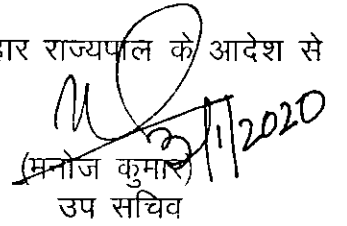 हार राज्यपाल के आदेश से
3/1/2020
(मनोज कुमार)
उप सचिव